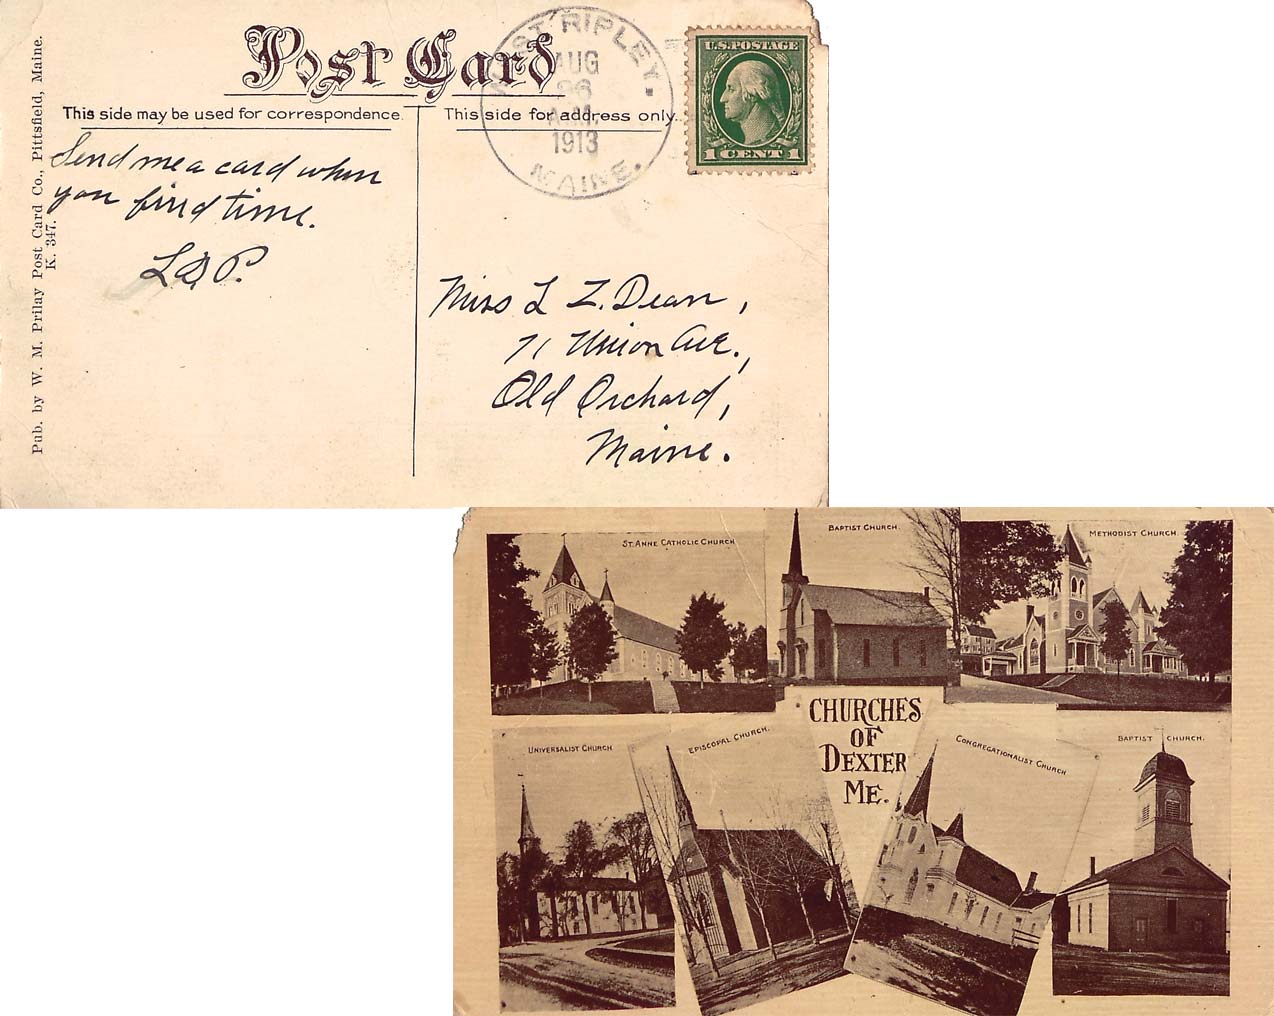 Post Card
This side may be used for correspondence.
This side for address only.
WEST RIPLEY.
AUG
26
A.M.
1913
MAINE.
U.S. POSTAGE
1 CENT 1
Pub. by W. M. Prilay Post Card Co., Pittsfield, Maine.
K. 347.
Send me a card when
you find time.
L.D.P.
Miss L Z. Dean,
71 Union Ave.,
Old Orchard,
Maine.
ST. ANNE CATHOLIC CHURCH
BAPTIST CHURCH.
METHODIST CHURCH.
CHURCHES
OF
DEXTER
ME.
UNIVERSALIST CHURCH
EPISCOPAL CHURCH.
CONGREGATIONALIST CHURCH
BAPTIST CHURCH.